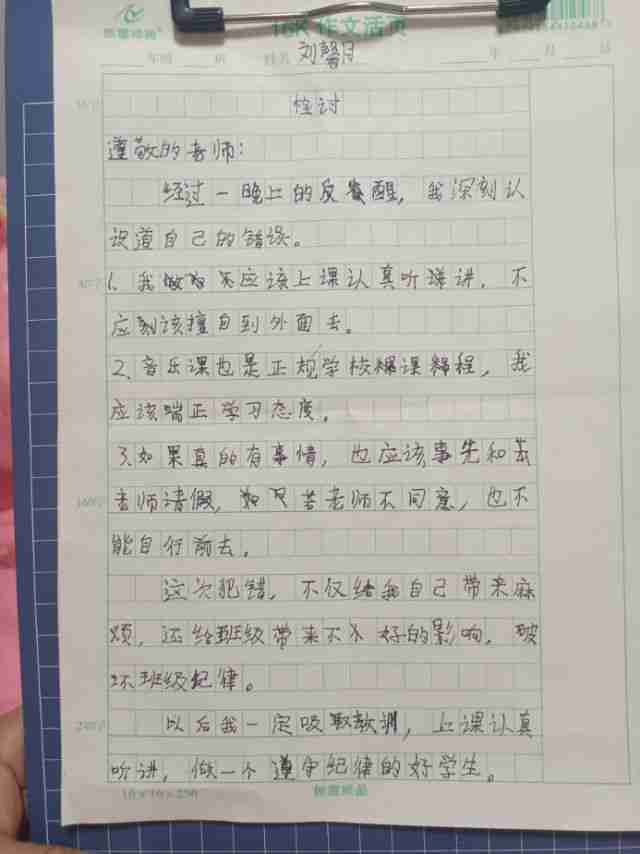 16K 作文活页
年级 班 姓名 刘馨月 年 月 日
检讨
遵敬的老师：
经过一晚上的反醒，我深刻认
识道自己的错误。
1、我应该上课认真听讲，不
应该擅自到外面去。
2、音乐课也是正规学校课程，我
应该端正学习态度。
3、如果真的有事情，也应该事先和
老师请假，若老师不同意，也不
能自行前去。
这次犯错，不仅给我自己带来麻
烦，还给班级带来不好的影响，破
坏班级纪律。
以后我一定吸取教训，上课认真
听讲，做一个遵守纪律的好学生。
16×16=256